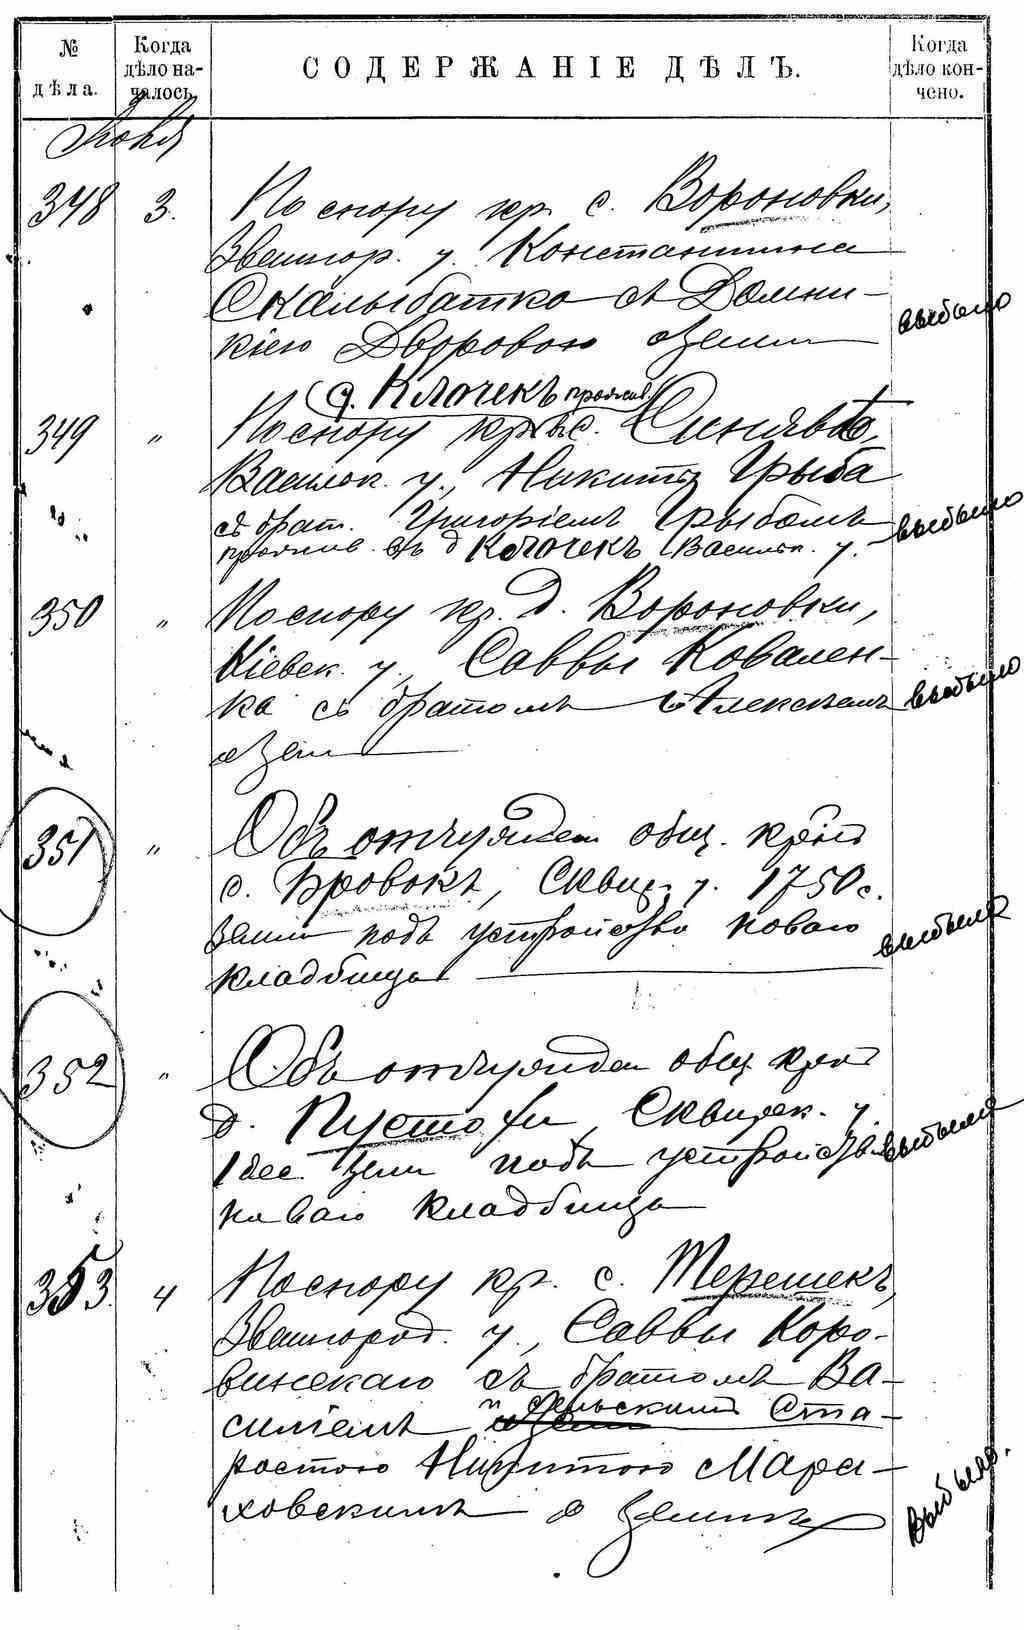 № дѣла.
Когда дѣло на-
чалось.
СОДЕРЖАНІЕ ДѢЛЪ.
Когда дѣло кон-
чено.
348 3. По спору кр. с. Вороновки,
Звенигор. у. Константина
Скалыбатко съ Домни-
кіею Дворовою о земли
выбыло
д. Клочекъ прожив.
349 " По спору кр. с. Синявѣ,
Васильк. у., Никиты Грыба
съ брат. Григоріемъ Грыбомъ
прожив. въ д. Клочекъ Васильк. у.
выбыло
350 " По спору кр. д. Вороновки,
Кіевск. у. Саввы Ковален-
ка съ братомъ Алексѣемъ
о зем
выбыло
351 " Объ отчужден общ. крест
с. Бровокъ, Сквир. у. 1750 с.
земли подъ устройство новаго
кладбища
выбыла
352 " Объ отчужден общ. крест
д. Пусто Сквирск. у.
1 дес. земли подъ устройство
новаго кладбища
выбыла
353. 4 По спору кр. с. Терешекъ,
Звенигород. у., Саввы Коро-
винскаго съ братомъ Ва-
силіемъ и сельскимъ Ста-
ростою Никитою Мара-
ховскимъ о земли
Выбыло.